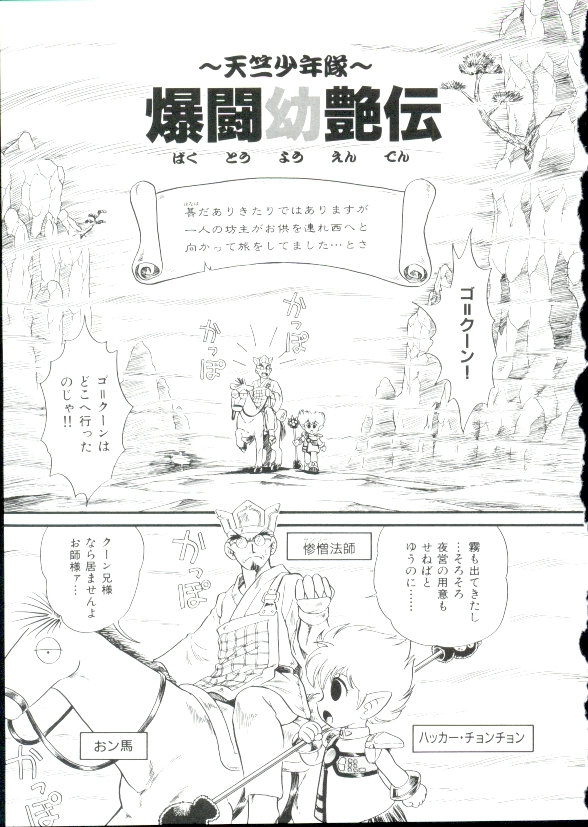 ～天竺少年隊～
爆闘幼艶伝
ばく とう よう えん でん
甚だありきたりではありますが
はなは
一人の坊主がお供を連れ西へと
向かって旅をしてました…とさ
ゴ＝クーン！
かっぽ
かっぽ
ゴ＝クーンは
どこへ行った
のじゃ!!
霧も出てきたし
…そろそろ
夜営の用意も
せねばと
ゆうのに……
惨憎法師
かっぽ
クーン兄様
なら居ませんよ
お師様ァ…
ハッカー・チョンチョン
おン馬
かっぽ